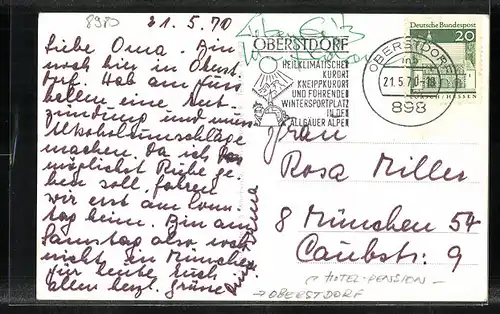 8980
21.5.70
Liebe Oma. Bin
noch hier in Oberst
dorf. Hab am Fuss
ballen eine Ent-
zündung und muss
Alkoholumschläge
machen. Da ich
möglichst Ruhe ge-
ben soll, fahren
wir erst am Sonn
tag heim. Bin am
Samstag also noch
nicht in München
Für heute Euch
allen herzl. Grüsse
OBERSTDORF
HEILKLIMATISCHER
KURORT
KNEIPPKURORT
UND FÜHRENDER
WINTERSPORTPLATZ
IN DEN
ALLGÄUER ALPEN
OBERSTDORF
21.5.70-18
898
Deutsche Bundespost
20
HESSEN
Frau
Rosa Miller
8 München 54
Caubstr. 9
HOTEL-PENSION
→ OBERSTDORF